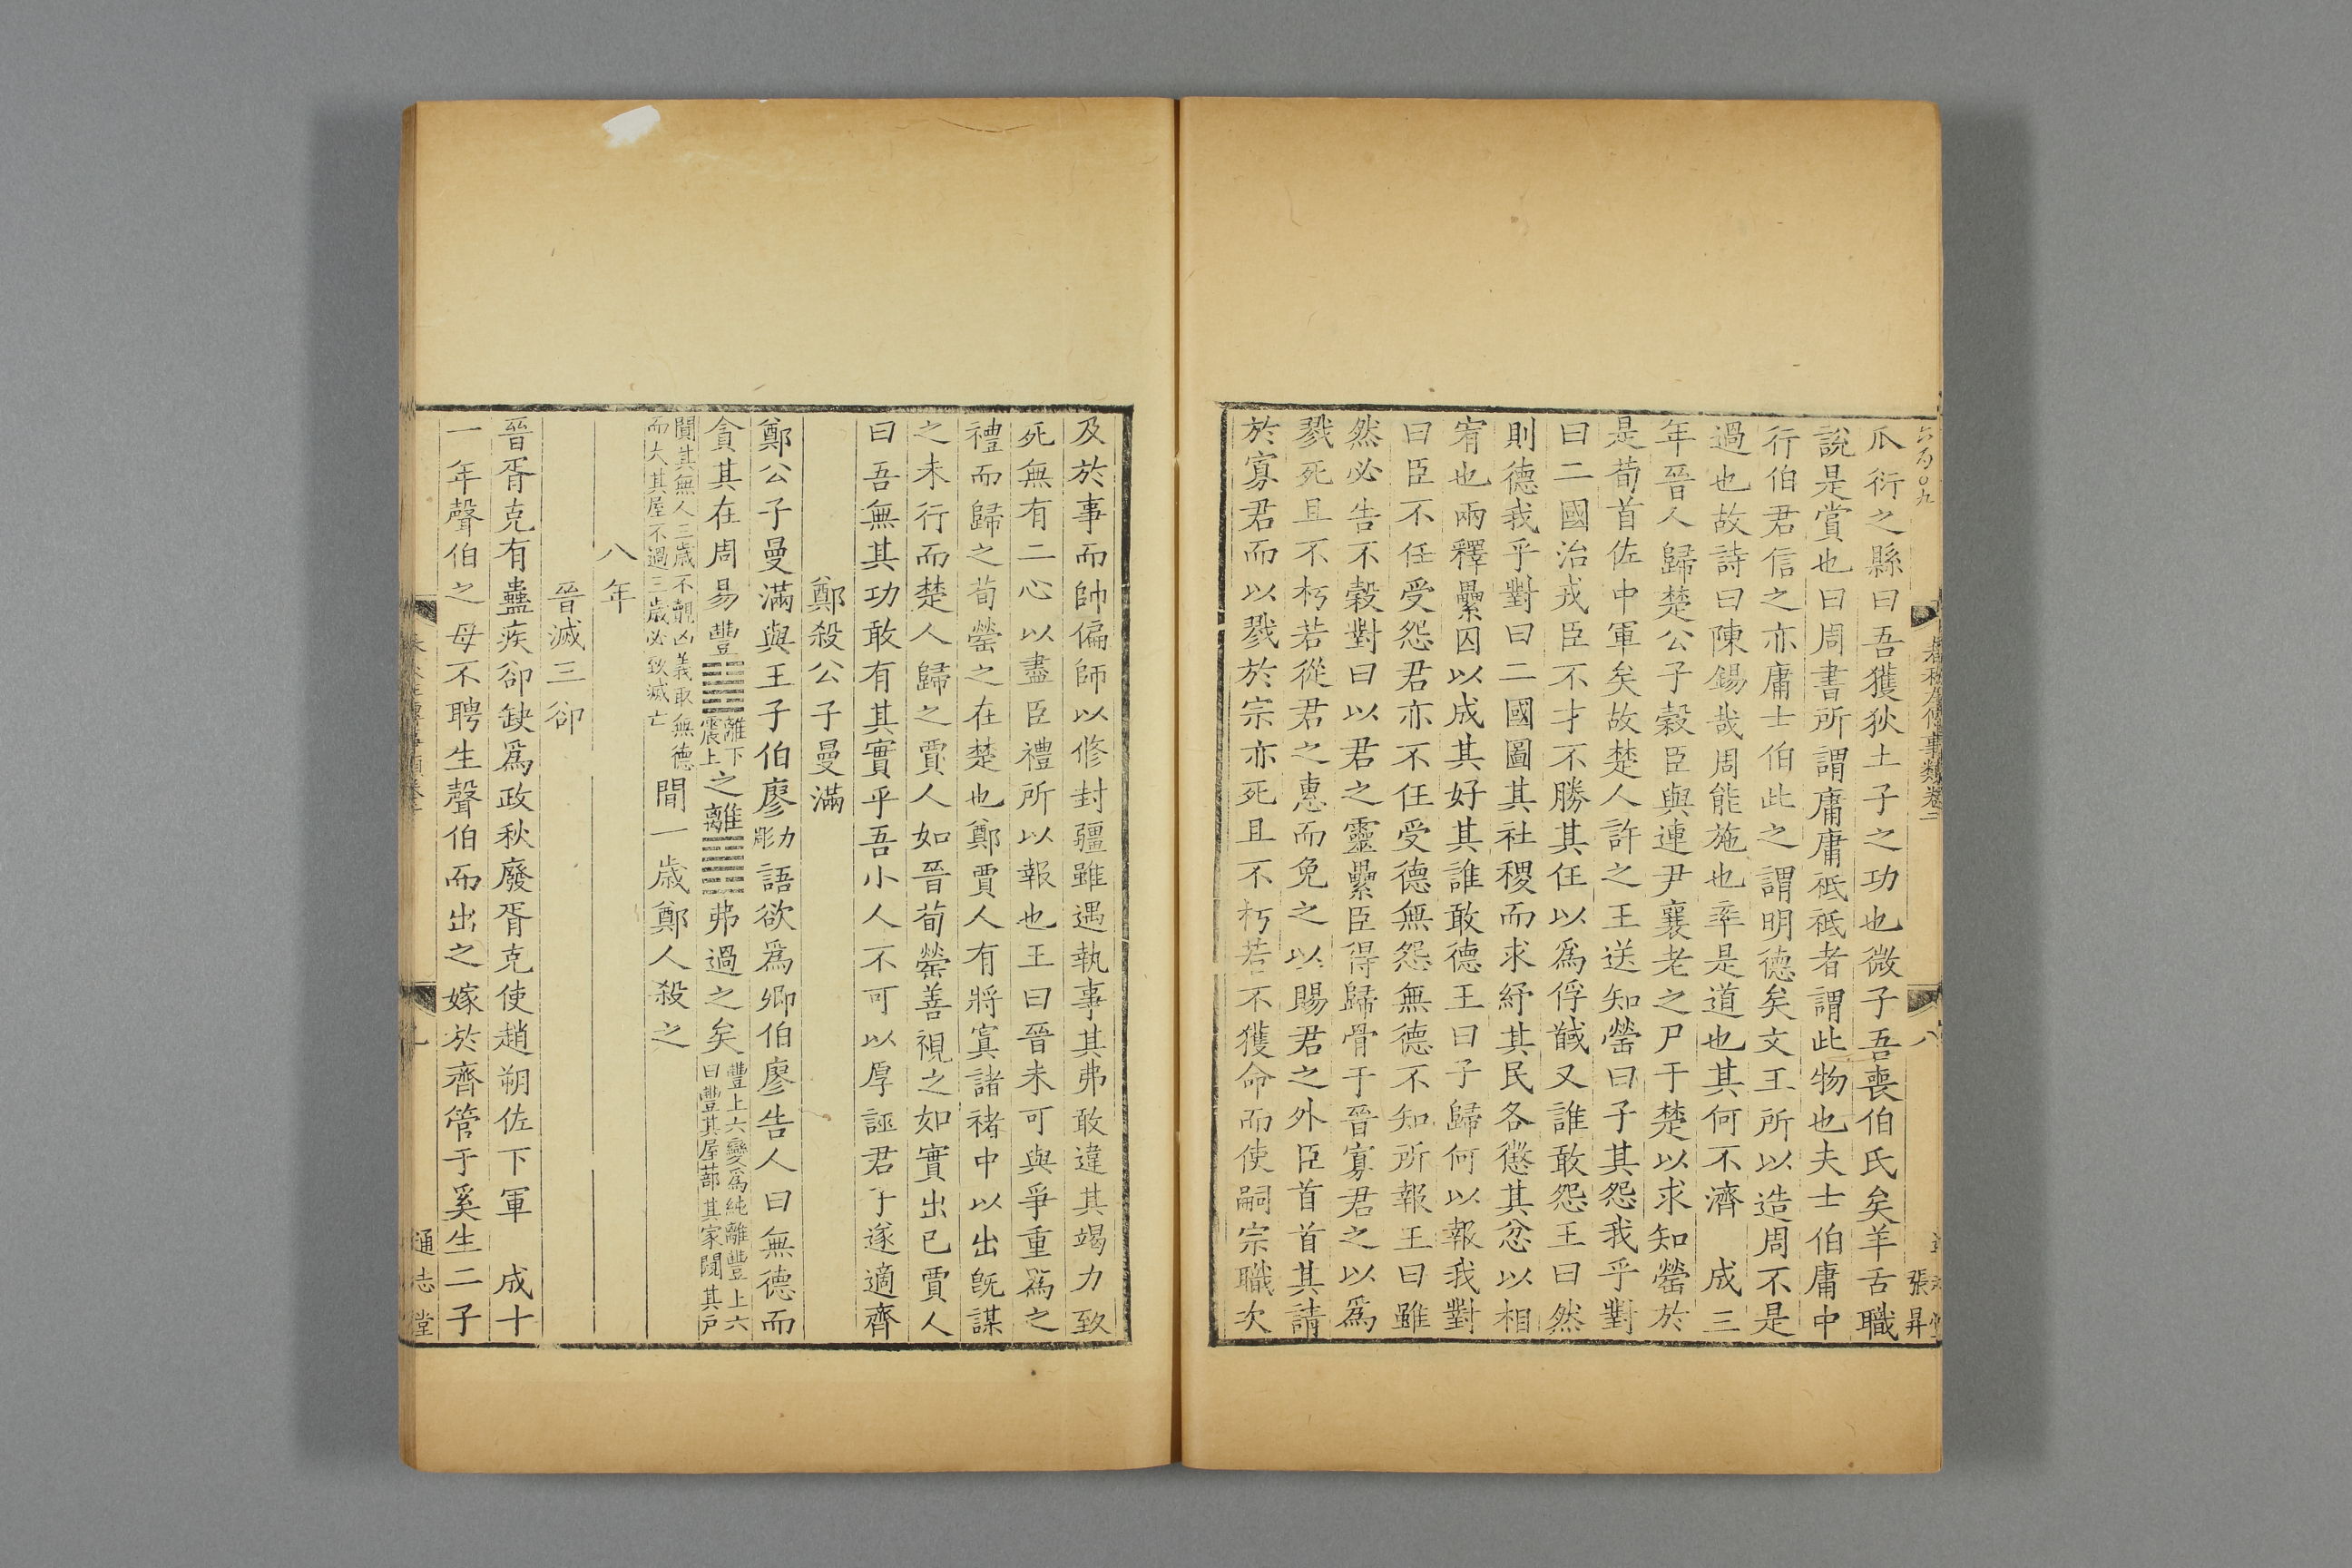 瓜衍之縣曰吾獲狄土子之功也微子吾喪伯氏矣羊舌職
說是賞也曰周書所謂庸庸祗祗者謂此物也夫士伯庸中
行伯君信之亦庸士伯此之謂明德矣文王所以造周不是
過也故詩曰陳錫哉周能施也率是道也其何不濟　成三
年晉人歸楚公子榖臣與連尹襄老之尸于楚以求知罃於
是荀首佐中軍矣故楚人許之王送知罃曰子其怨我乎對
曰二國治戎臣不才不勝其任以爲俘馘又誰敢怨王曰然
則德我乎對曰二國圖其社稷而求紓其民各懲其忿以相
宥也兩釋纍囚以成其好其誰敢德王曰子歸何以報我對
曰臣不任受怨君亦不任受德無怨無德不知所報王曰雖
然必告不穀對曰以君之靈纍臣得歸骨于晉寡君之以爲
戮死且不朽若從君之惠而免之以賜君之外臣首首其請
於寡君而以戮於宗亦死且不朽若不獲命而使嗣宗職次
六百〇九
春秋左傳事類卷二
八
張昇
及於事而帥偏師以修封疆雖遇執事其弗敢違其竭力致
死無有二心以盡臣禮所以報也王曰晉未可與爭重爲之
禮而歸之荀罃之在楚也鄭賈人有將寘諸褚中以出旣謀
之未行而楚人歸之賈人如晉荀罃善視之如實出已賈人
曰吾無其功敢有其實乎吾小人不可以厚誣君子遂適齊
鄭殺公子曼滿
鄭公子曼滿與王子伯廖力彫語欲爲卿伯廖告人曰無德而
貪其在周易豐離下震上之離弗過之矣豐上六變爲純離豐上六曰豐其屋蔀其家闚其戸
闃其無人三歲不覿凶義取無德而大其屋不過三歲必致滅亡間一歲鄭人殺之
八年
晉滅三郤
晉胥克有蠱疾郤缺爲政秋廢胥克使趙朔佐下軍　成十
一年聲伯之母不聘生聲伯而出之嫁於齊管于奚生二子
通志堂